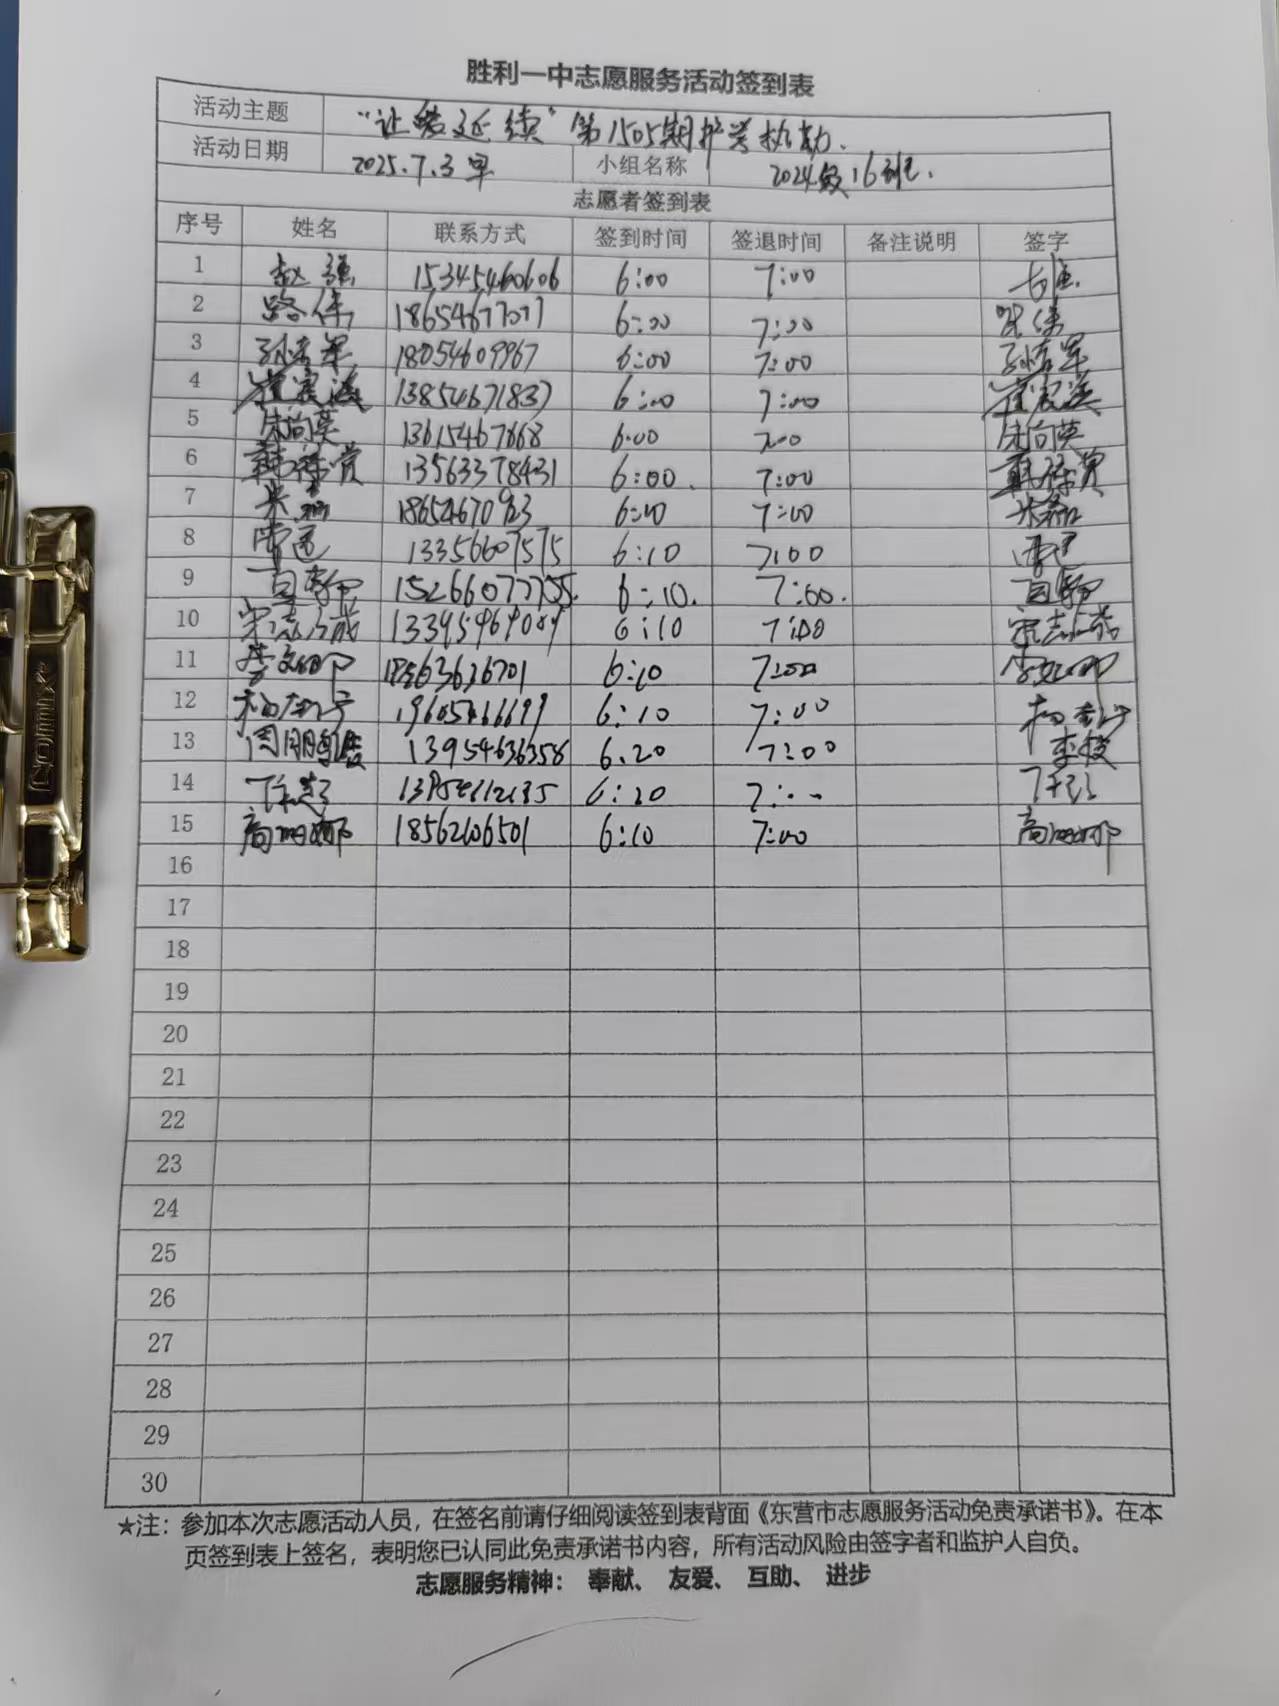 胜利一中志愿服务活动签到表
活动主题 "让爱延续"第1505期护学执勤.
活动日期 2025.7.3 早 小组名称 2024级16班.
志愿者签到表
序号 姓名 联系方式 签到时间 签退时间 备注说明 签字
1 赵强 15345460606 6:00 7:00
2 路伟 18654677077 6:00 7:00 路伟
3 18054609967 6:00 7:00
4 崔宸溢 13854671837 6:00 7:00 崔宸溢
5 朱向英 13615467868 6:00 7:00 朱向英
6 13563378431 6:00. 7:00
7 18654670923 6:00 7:00
8 13356607575 6:10 7:00
9 15266077755. 6:10. 7:00.
10 13395469089 6:10 7:00
11 李文娜 18563636701 6:10 7:00 李文娜
12 19605466699 6:10 7:00
13 13954636358 6:20 7:00 李俊
14 6:20 7:..
15 高明娜 18562106501 6:10 7:00 高明娜
16
17
18
19
20
21
22
23
24
25
26
27
28
29
30
★注：参加本次志愿活动人员，在签名前请仔细阅读签到表背面《东营市志愿服务活动免责承诺书》。在本
页签到表上签名，表明您已认同此免责承诺书内容，所有活动风险由签字者和监护人自负。
志愿服务精神： 奉献、 友爱、 互助、 进步
COMIX